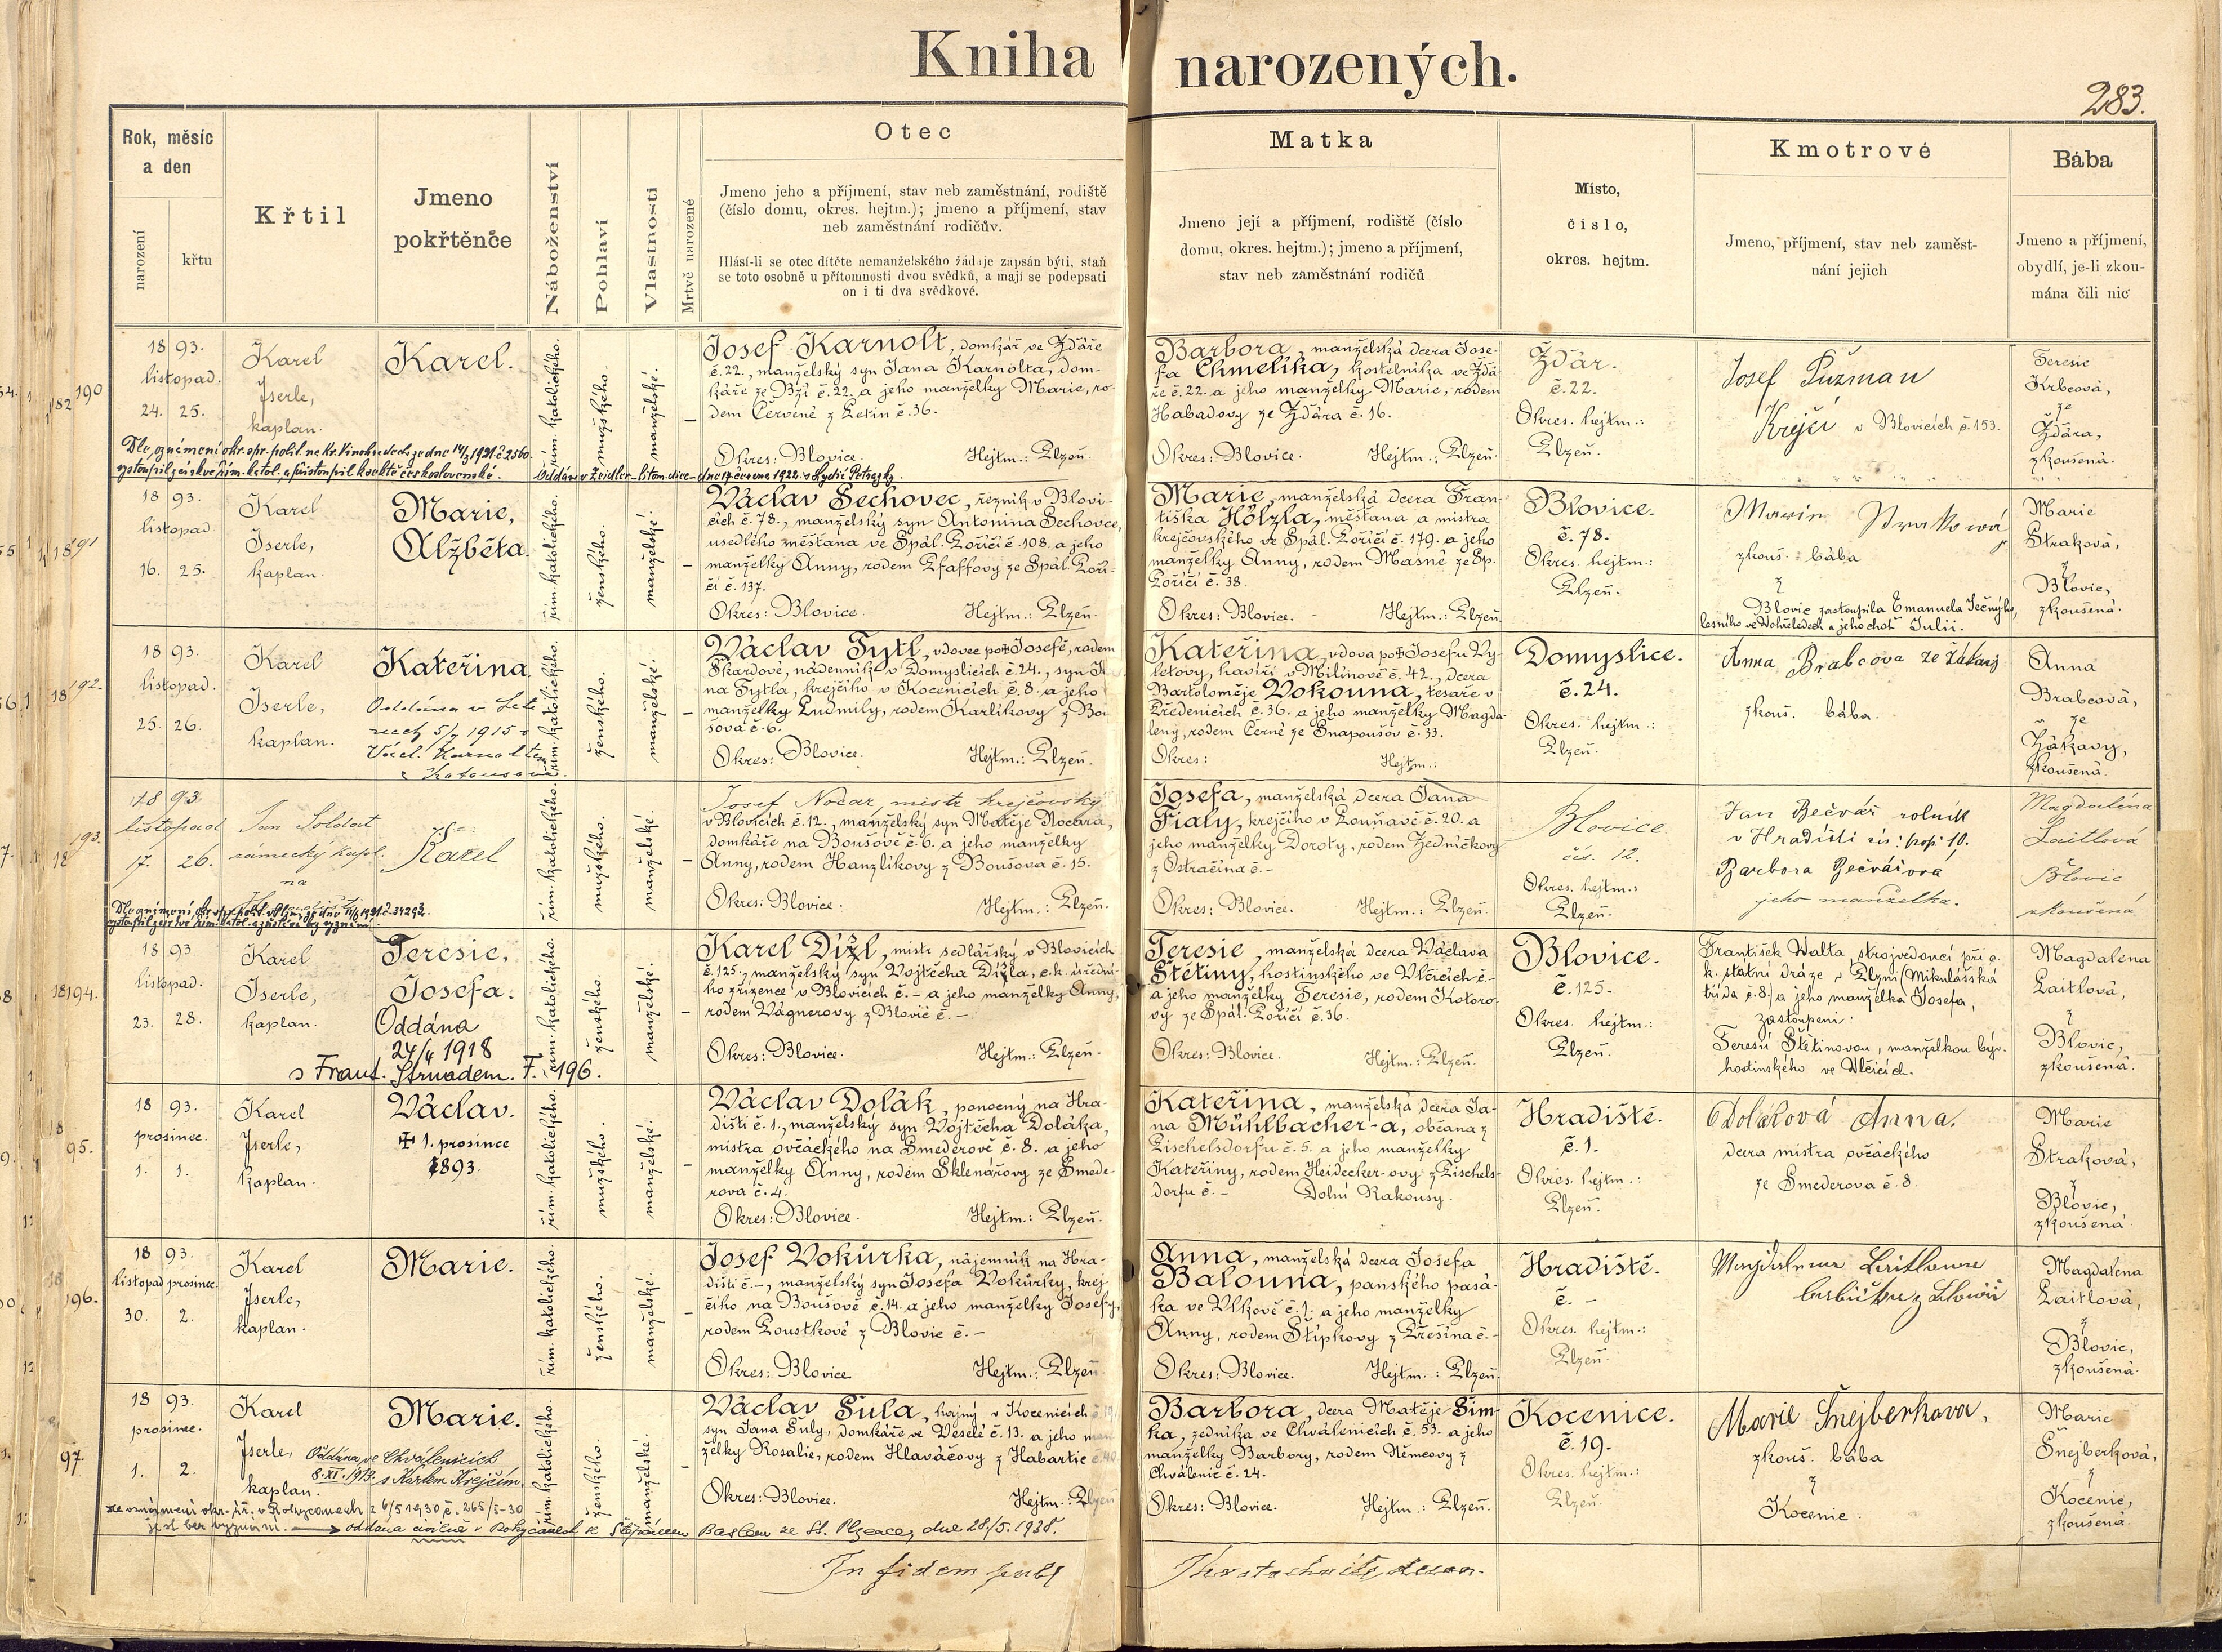 Kniha narozených.
283.
Rok, měsíc
a den
narození
křtu
Křtil
Jmeno
pokřtěnče
Náboženství
Pohlaví
Vlastnosti
Mrtvě narozené
Otec
Jmeno jeho a příjmení, stav neb zaměstnání, rodiště
(číslo domu, okres. hejtm.); jmeno a příjmení, stav
neb zaměstnání rodičův.
Hlásí-li se otec dítěte nemanželského žádaje zapsán býti, staň
se toto osobně u přítomnosti dvou svědků, a mají se podepsati
on i ti dva svědkové.
Matka
Jmeno její a příjmení, rodiště (číslo
domu, okres. hejtm.); jmeno a příjmení,
stav neb zaměstnání rodičů
Místo,
číslo,
okres. hejtm.
Kmotrové
Jmeno, příjmení, stav neb zaměst-
nání jejich
Bába
Jmeno a příjmení,
obydlí, je-li zkou-
mána čili nic
190
1893.
listopad.
24. 25.
Karel
Jserle,
kaplan.
Karel.
řím. katolického.
mužského.
manželské.
Josef Karnolt, domkář ve Žďáře
č. 22., manželský syn Jana Karnolta, dom-
káře ze Bží č. 22. a jeho manželky Marie, ro-
dem Červené z Letin č. 36.
Okres: Blovice. Hejtm.: Plzeň.
Barbora, manželská dcera Jose-
fa Chmelíka, kostelníka ve Žďá-
ře č. 22. a jeho manželky Marie, rodem
Habadovy ze Žďára č. 16.
Okres: Blovice. Hejtm.: Plzeň.
Žďár.
č. 22.
Okres. hejtm.:
Plzeň.
Josef Pužman
Krejčí v Blovicích č. 153.
Teresie
Krbcová,
ze
Žďára,
zkoušená.
191
1893.
listopad
16. 25.
Karel
Jserle,
kaplan.
Marie,
Alžběta.
řím. katolického.
ženského.
manželské.
Václav Sechovec, řezník v Blovi-
cích č. 78., manželský syn Antonína Sechovce,
usedlého měšťana ve Spál. Poříčí č. 108. a jeho
manželky Anny, rodem Pfaffovy ze Spál. Poří-
čí č. 137.
Okres: Blovice. Hejtm.: Plzeň.
Marie, manželská dcera Fran-
tiška Hölzla, měšťana a mistra
krejčovského ve Spál. Poříčí č. 179. a jeho
manželky Anny, rodem Masné ze Sp.
Poříčí č. 38.
Okres: Blovice. Hejtm.: Plzeň.
Blovice.
č. 78.
Okres. hejtm.:
Plzeň.
zkouš. bába
z
Blovic zastoupila Emanuela Ječného,
lesního ve a jeho choť Julii.
Marie
Straková,
z
Blovic,
zkoušená.
192.
1893.
listopad.
25. 26.
Karel
Jserle,
kaplan.
Kateřina.
Oddána v
5/7 1915
řím. katolického.
ženského.
manželské.
Václav Tytl, vdovec po Josefě, rodem
Škardové, nádenník v Domyslicích č. 24., syn Ja
na Tytla, krejčího v Kocenicích č. 8. a jeho
manželky Ludmily, rodem Karlíkovy z Bou
šova č. 6.
Okres: Blovice. Hejtm.: Plzeň.
Kateřina, vdova po Josefu Vy-
letovy, havíři v Milínově č. 42., dcera
Bartoloměje Vokouna, tesaře v
Předenicích č. 36. a jeho manželky Magda-
leny, rodem Černé ze Snopoušov č. 33.
Okres: Hejtm.:
Domyslice.
č. 24.
Okres. hejtm.:
Plzeň.
Anna Brabcova ze Žákavy
zkouš. bába.
Anna
Brabcová,
ze
Žákavy,
zkoušená.
193.
1893
listopad
17. 26.
Jan Soldat
zámecký kapl.
na
Karel
řím. katolického.
mužského.
manželské.
Josef Nočar, mistr krejčovský
v Blovicích č. 12., manželský syn Matěje Nocara,
domkáře na Boušově č. 6. a jeho manželky
Anny, rodem Hanzlíkovy z Boušova č. 15.
Okres: Blovice. Hejtm.: Plzeň.
Josefa, manželská dcera Jana
Fialy, krejčího v Zouňavě č. 20. a
jeho manželky Doroty, rodem Jedničkovy
z Ostračína č. -
Okres: Blovice. Hejtm.: Plzeň.
Blovice
čís. 12.
Okres. hejtm.:
Plzeň.
Jan Bečvář rolník
v Hradišti čís: pop: 10.
Barbora Bečvářová
jeho manželka.
Magdaléna
Laitlová
Blovic
zkoušená
194.
1893
listopad.
23. 28.
Karel
Jserle,
kaplan.
Teresie,
Josefa.
Oddána
24/4 1918
s Frant. Strnadem. F. 196.
řím. katolického.
ženského.
manželské.
Karel Dížl, mistr sedlářský v Blovicích
č. 125., manželský syn Vojtěcha Dížla, c. k. úřední-
ho zřízence v Blovicích č. - a jeho manželky Anny,
rodem Vágnerovy z Blovic č. -
Okres: Blovice. Hejtm.: Plzeň.
Teresie, manželská dcera Václava
Štětiny, hostinského ve Vlčicích č. -
a jeho manželky Teresie, rodem Kotoro-
vy ze Spál. Poříčí č. 36.
Okres: Blovice. Hejtm.: Plzeň.
Blovice.
č. 125.
Okres. hejtm.:
Plzeň.
František Walta, strojvedoucí při c.
k. státní dráze v Plzni (Mikulášská
třída č. 8.) a jeho manželka Josefa,
zastoupeni:
Teresií Štětinovou, manželkou býv.
hostinského ve Vlčicích.
Magdalena
Laitlová,
z
Blovic,
zkoušená.
95.
1893.
prosinec.
1. 1.
Karel
Jserle,
kaplan.
Václav.
1. prosince
1893.
řím. katolického.
mužského.
manželské.
Václav Dolák, ponocný na Hra-
dišti č. 1., manželský syn Vojtěcha Doláka,
mistra ovčáckého na Smederově č. 8. a jeho
manželky Anny, rodem Sklenářovy ze Smede-
rova č. 4.
Okres: Blovice. Hejtm.: Plzeň.
Kateřina, manželská dcera Ja-
na Mühlbacher-a, občana z
Pischelsdorfu č. 5. a jeho manželky
Kateřiny, rodem Heidecker-ovy z Pischels-
dorfu č. - Dolní Rakousy.
Hradiště.
č. 1.
Okres. hejtm.:
Plzeň.
Doláková Anna.
dcera mistra ovčáckého
ze Smederova č. 8.
Marie
Straková,
z
Blovic,
zkoušená.
196.
1893.
listopad prosinec.
30. 2.
Karel
Jserle,
kaplan.
Marie.
řím. katolického.
ženského.
manželské.
Josef Vokůrka, nájemník na Hra-
dišti č. -, manželský syn Josefa Vokůrky, krej-
čího na Boušově č. 14. a jeho manželky Josefy,
rodem Poustkové z Blovic č. -
Okres: Blovice. Hejtm.: Plzeň.
Anna, manželská dcera Josefa
Balouna, panského pasá-
ka ve Vlkově č. 1. a jeho manželky
Anny, rodem Štípkovy z Přešína č. -
Okres: Blovice. Hejtm.: Plzeň.
Hradiště.
č. -
Okres. hejtm.:
Plzeň.
Magdalena Laitlova
Magdalena
Laitlová,
z
Blovic,
zkoušená.
97.
1893.
prosinec.
1. 2.
Karel
Jserle,
kaplan.
Oddána ve Chválenicích
8. XI. 1913. s Karlem Krejčím.
Marie.
řím. katolického.
ženského.
manželské.
Václav Šula, hajný v Kocenicích č. 19.
syn Jana Šuly, domkáře ve Veselé č. 13. a jeho man
želky Rosalie, rodem Hlaváčovy z Habartic č. 40.
Okres: Blovice. Hejtm.: Plzeň
Barbora, dcera Matěje Šim-
ka, zedníka ve Chválenicích č. 53. a jeho
manželky Barbory, rodem Němcovy z
Chválenic č. 24.
Okres: Blovice. Hejtm.: Plzeň.
Kocenice.
č. 19.
Okres. hejtm.:
Plzeň.
Marie Šnejberkova,
zkouš. bába
z
Kocenic.
Marie
Šnejberková,
z
Kocenic,
zkoušená.
oddána civilně v Rokycanech se Štěpánem Baslem ze St. Plzence, dne 28./5. 1938.
In fidem publ